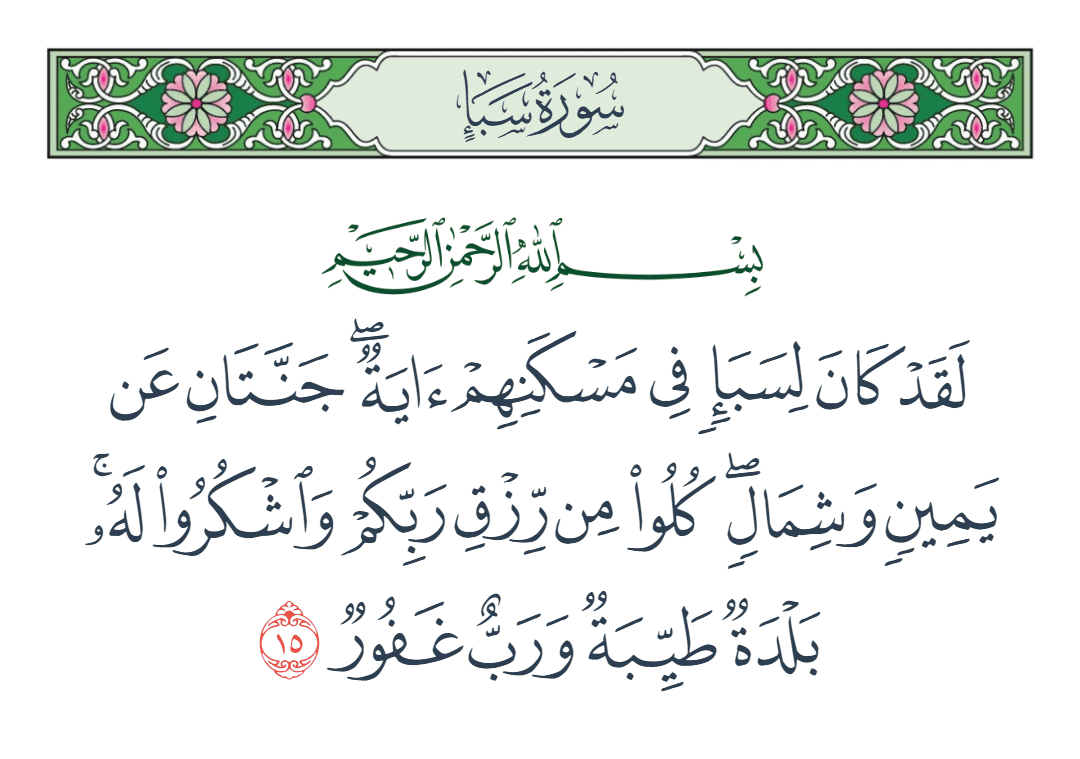 سُورَةُ سَبَإٍ
بِسْمِ ٱللَّهِ ٱلرَّحْمَٰنِ ٱلرَّحِيمِ
لَقَدْ كَانَ لِسَبَإٍ فِى مَسْكَنِهِمْ ءَايَةٌ ۖ جَنَّتَانِ عَن
يَمِينٍ وَشِمَالٍ ۖ كُلُوا۟ مِن رِّزْقِ رَبِّكُمْ وَٱشْكُرُوا۟ لَهُۥ ۚ
بَلْدَةٌ طَيِّبَةٌ وَرَبٌّ غَفُورٌ ١٥